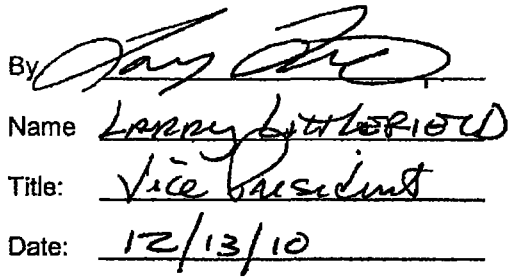 By
Name Larry Littlefield
Title: Vice President
Date: 12/13/10